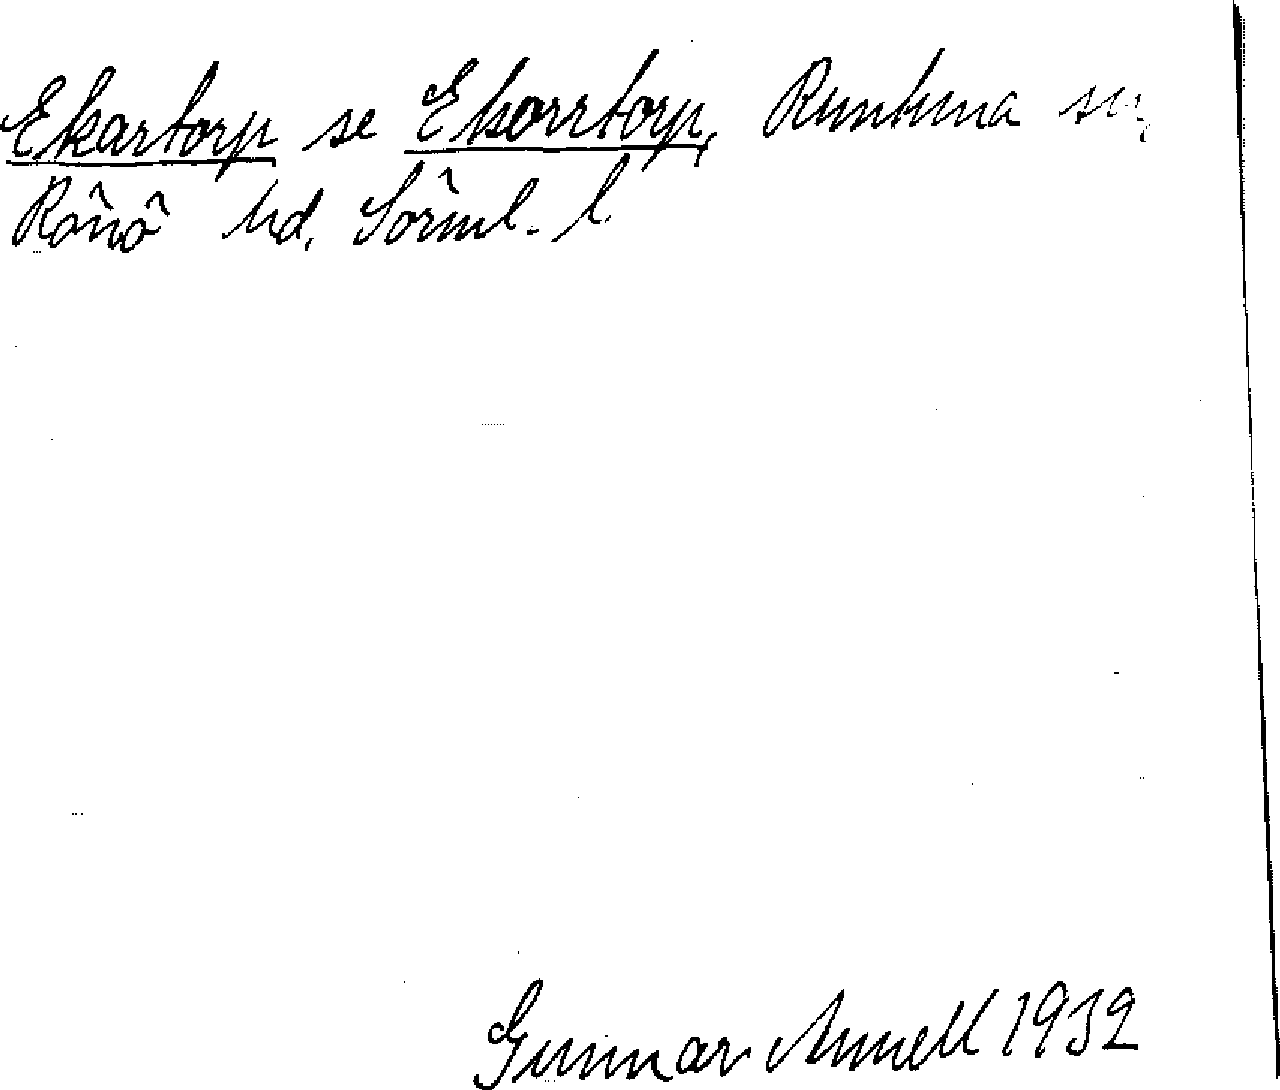 Ekartorp se Ekorrtorp, Runtuna sn,
Rönö hd. Sörml. l.
Gunnar Annell 1932